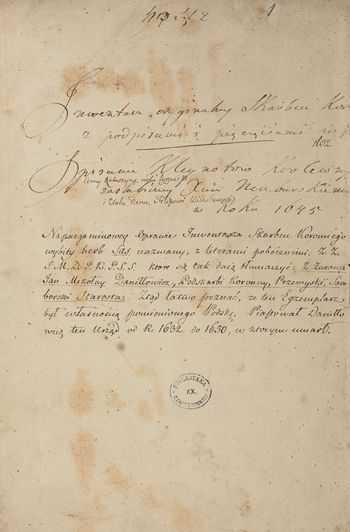 1
Inwentarz oryginalny Skarbcu Kor
z podpisami i pieczęciami
1632
Spisanie Kleynotow Krolewny
zaślubioney Xciu Neuburskiemu
w Roku 1645
Na pargaminowey oprawie Inwentarza Skarbcu Koronnego
wybity herb Sas nazwany, z literami pobocznemi. Z. Z.
I. M. D. P. K. P. S. S. ktore się tak daią tłumaczyć: Z Zurowa
Jan Mikołay Daniłłowicz, Podskarbi Koronny, Przemyski, Sam
borski Starosta. Ztąd łatwo poznać, ze ten Egzemplarz
był własnością pomienionego Podsk. Piastował Daniłło
wicz ten Urząd od R. 1632. do 1650, w ktorym umarł.
BIBLIOTEKA
XX.
CZARTORYSKICH